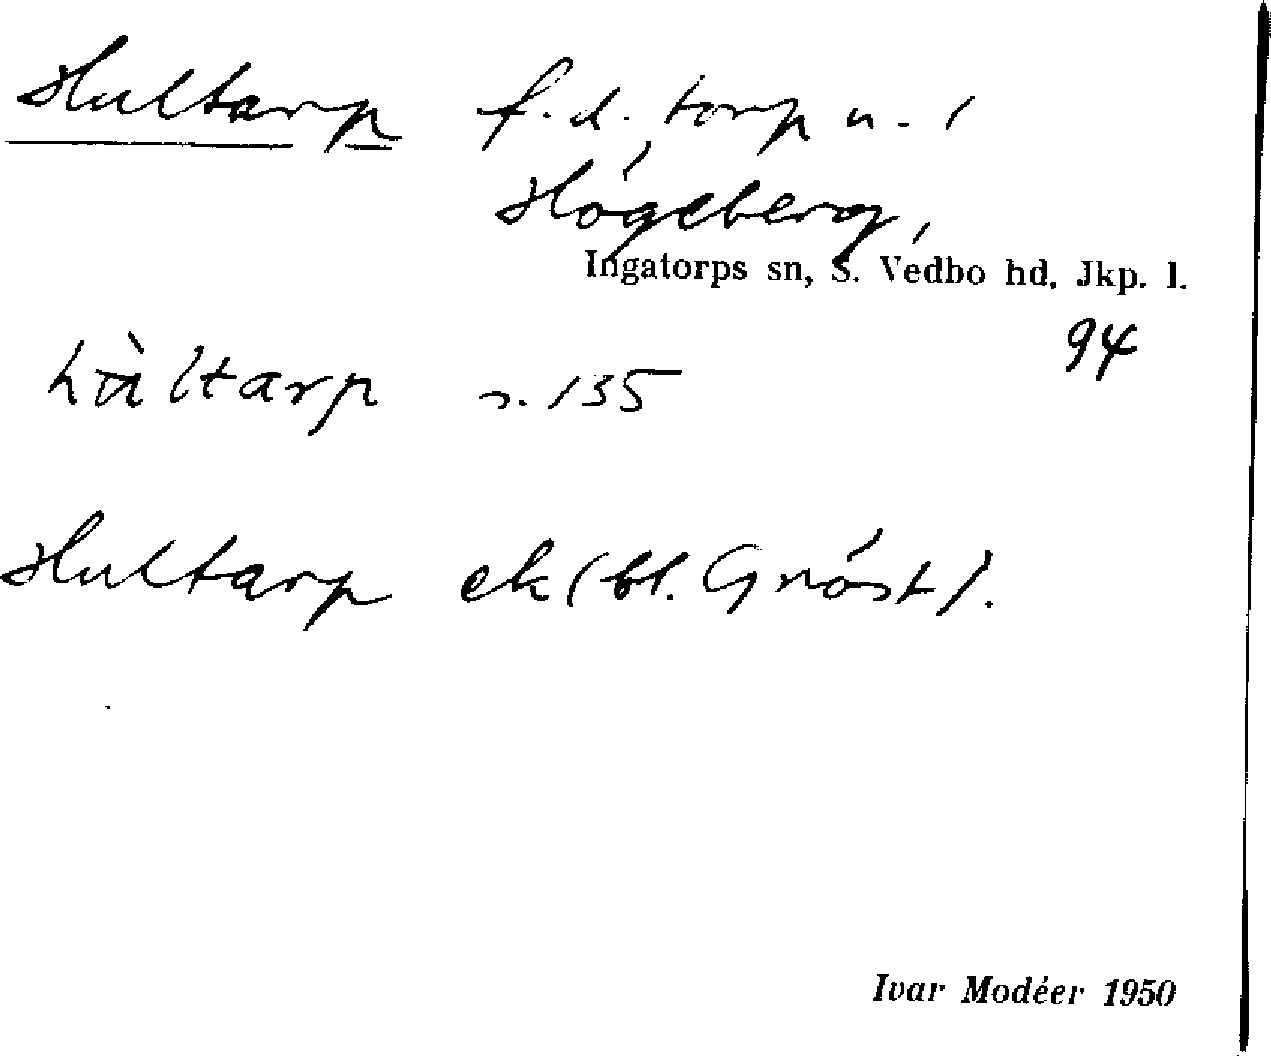 Hultarp f.d. torp u. /
Högeberg,
Ingatorps sn, S. Vedbo hd, Jkp. l.
94
hùltarp s. 135
Hultarp ek (bl. Gnöst).
Ivar Modéer 1950